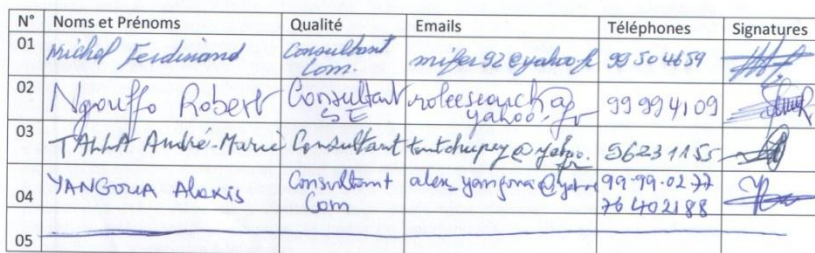 N° Noms et Prénoms Qualité Emails Téléphones Signatures
01 Michel Ferdinand Consultant Com. mifer92@yahoo.fr 99504659
02 Ngouffo Robert Consultant SE yahoo.fr 99994109
03 TALLA André-Marie Consultant 56231155
04 YANGOUA Alexis Consultant Com 99.99.02.77
76402188
05